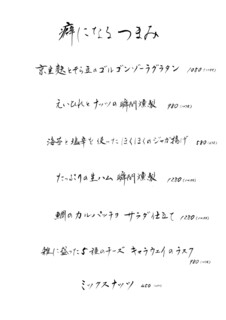 癖になる つまみ
京生麩とそら豆のゴルゴンゾーラグラタン 1080
えいひれとナッツの瞬間燻製 980
海苔と塩辛を使ったほくほくのジャガ揚げ 880
たっぷりの生ハム 瞬間燻製 1280
鯛のカルパッチョ サラダ仕立て 1280
雑に盛った5種のチーズ キャラウェイのラスク
980
ミックスナッツ 650